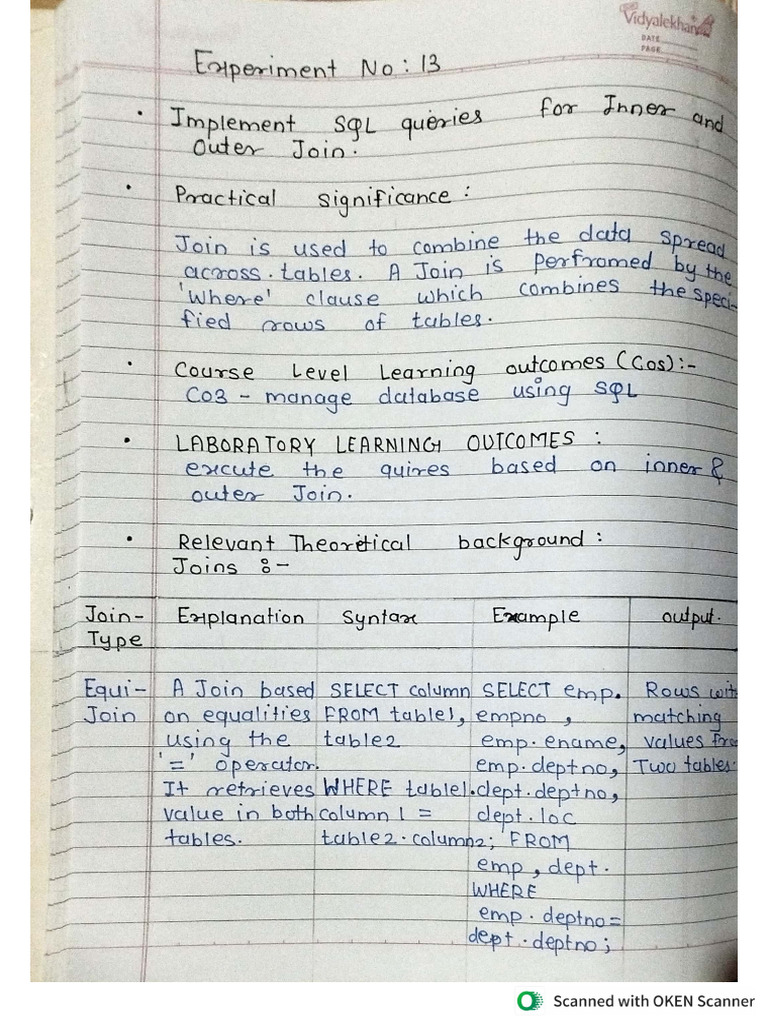 Vidyalekhan
DATE
PAGE
Experiment No : 13
• Implement SQL queries for Inner and
Outer Join.
• Practical significance :
Join is used to combine the data spread
across. tables. A Join is perfromed by the
'Where' clause which combines the speci-
fied rows of tables.
• Course Level Learning outcomes (Cos) :-
CO3 - manage database using SQL
• LABORATORY LEARNING OUTCOMES :
execute the quires based on inner &
outer Join.
• Relevant Theoretical background :
Joins :-
Join-Type
Explanation
Syntax
Example
output.
Equi-
Join
A Join based
on equalities
using the
'=' operator.
It retrieves
value in both
tables.
SELECT column
FROM table1,
table2
WHERE table1.
column 1 =
table2.column2;
SELECT emp.
empno ,
emp.ename,
emp.deptno,
dept.deptno,
dept.loc
FROM
emp , dept.
WHERE
emp.deptno=
dept.deptno;
Rows
matching
values
Two tables.
Scanned with OKEN Scanner